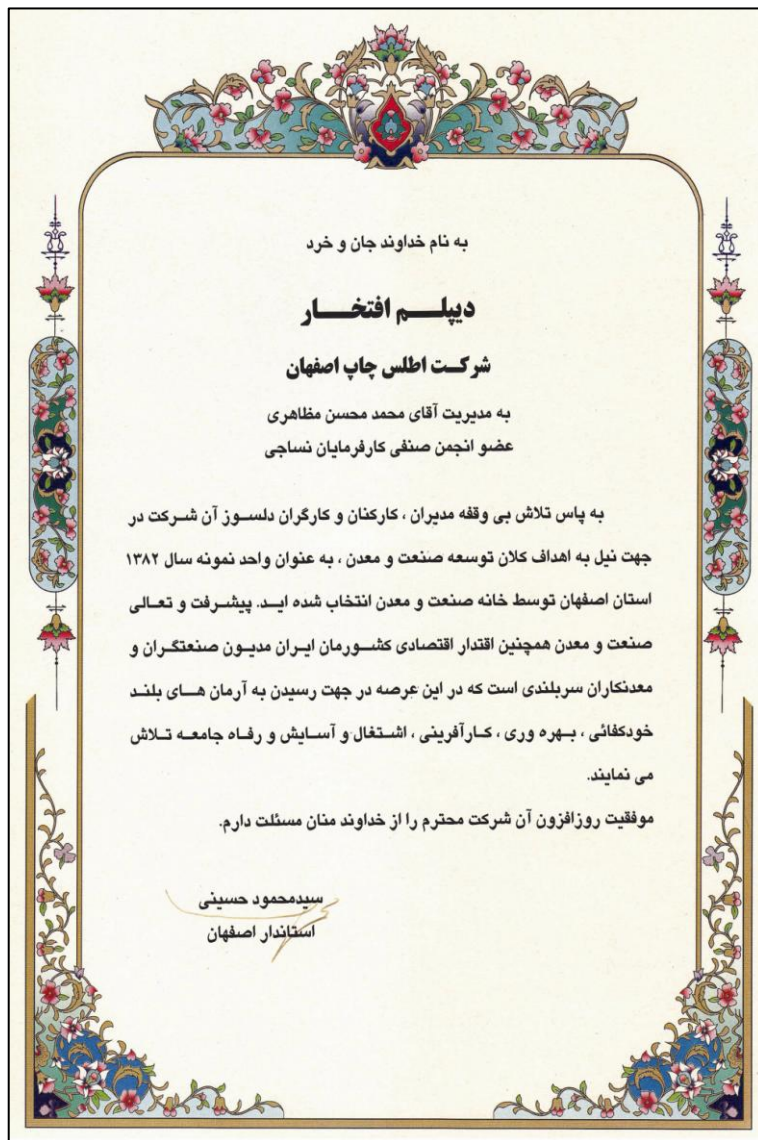 به نام خداوند جان و خرد
دیپلـــم افتخـــار
شرکــت اطلس چاپ اصفهان
به مدیریت آقای محمد محسن مظاهری
عضو انجمن صنفی کارفرمایان نساجی
به پاس تلاش بی وقفه مدیران ، کارکنان و کارگران دلسـوز آن شـرکت در
جهت نیل به اهداف کلان توسعه صنعت و معدن ، به عنوان واحد نمونه سال ۱۳۸۲
استان اصفهان توسط خانه صنعت و معدن انتخاب شده ایـد. پیشـرفت و تعالی
صنعت و معدن همچنین اقتدار اقتصادی کشـورمان ایـران مدیـون صنعتگـران و
معدنکاران سربلندی است که در این عرصه در جهت رسیدن به آرمان هـای بلنـد
خودکفائی ، بهـره وری ، کـارآفرینی ، اشـتغال و آسـایش و رفـاه جامعـه تـلاش
می نمایند.
موفقیت روزافزون آن شرکت محترم را از خداوند منان مسئلت دارم.
سیدمحمود حسینی
استاندار اصفهان